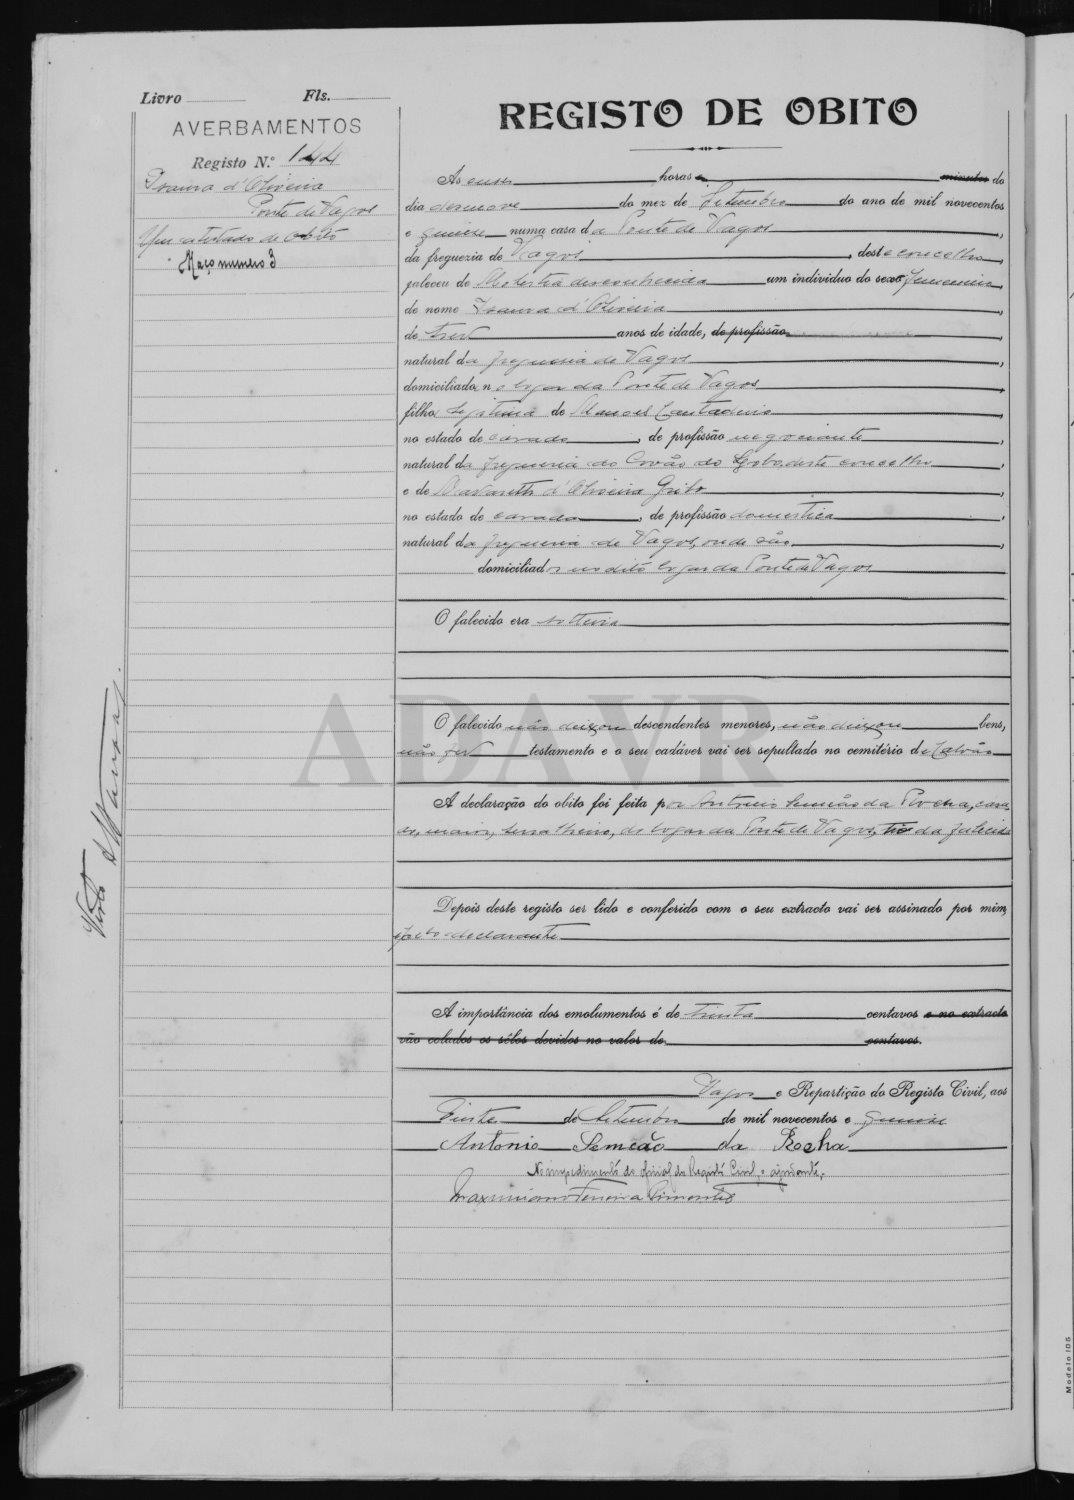 Livro Fls.
AVERBAMENTOS
Registo N.º 144
Izaura d'Oliveira
Ponte de Vagos
Um atestado de obito
Maço numero 3
Visto
REGISTO DE OBITO
Ás onze horas e minutos do
dia desenove do mez de Setembro do ano de mil novecentos
e quinze numa casa da Ponte de Vagos,
da freguezia de Vagos, deste concelho,
faleceu de Molestia desconhecida um individuo do sexo femenino,
de nome Izaura d'Oliveira,
de tres anos de idade, de profissão,
natural da freguesia de Vagos,
domiciliada no logar da Ponte de Vagos,
filha legitima de Manoel,
no estado de casado, de profissão negociante,
natural da freguesia do Covão do Lobo, deste concelho,
e de Nazareth d'Oliveira,
no estado de casada, de profissão domestica,
natural da freguesia de Vagos, onde são
domiciliados no dito logar da Ponte de Vagos
O falecido era solteira
O falecido não deixou descendentes menores, não deixou bens,
não fez testamento e o seu cadáver vai ser sepultado no cemitério de Calvão
A declaração do obito foi feita por Antonio Semeão da Rocha, casa
do, maior, serralheiro, do logar da Ponte de Vagos, tio da falecida
Depois deste registo ser lido e conferido com o seu extracto vai ser assinado por mim,
e pelo declarante
A importância dos emolumentos é de trinta centavos e no extracto
vão colados os sêlos devidos no valor de centavos.
Vagos e Repartição do Registo Civil, aos
vinte de Setembro de mil novecentos e quinze
Antonio Semeão da Rocha
No impedimento do oficial do Registo Civil, o ajudante,
Maximiano Ferreira
ADAVR
Modelo 105